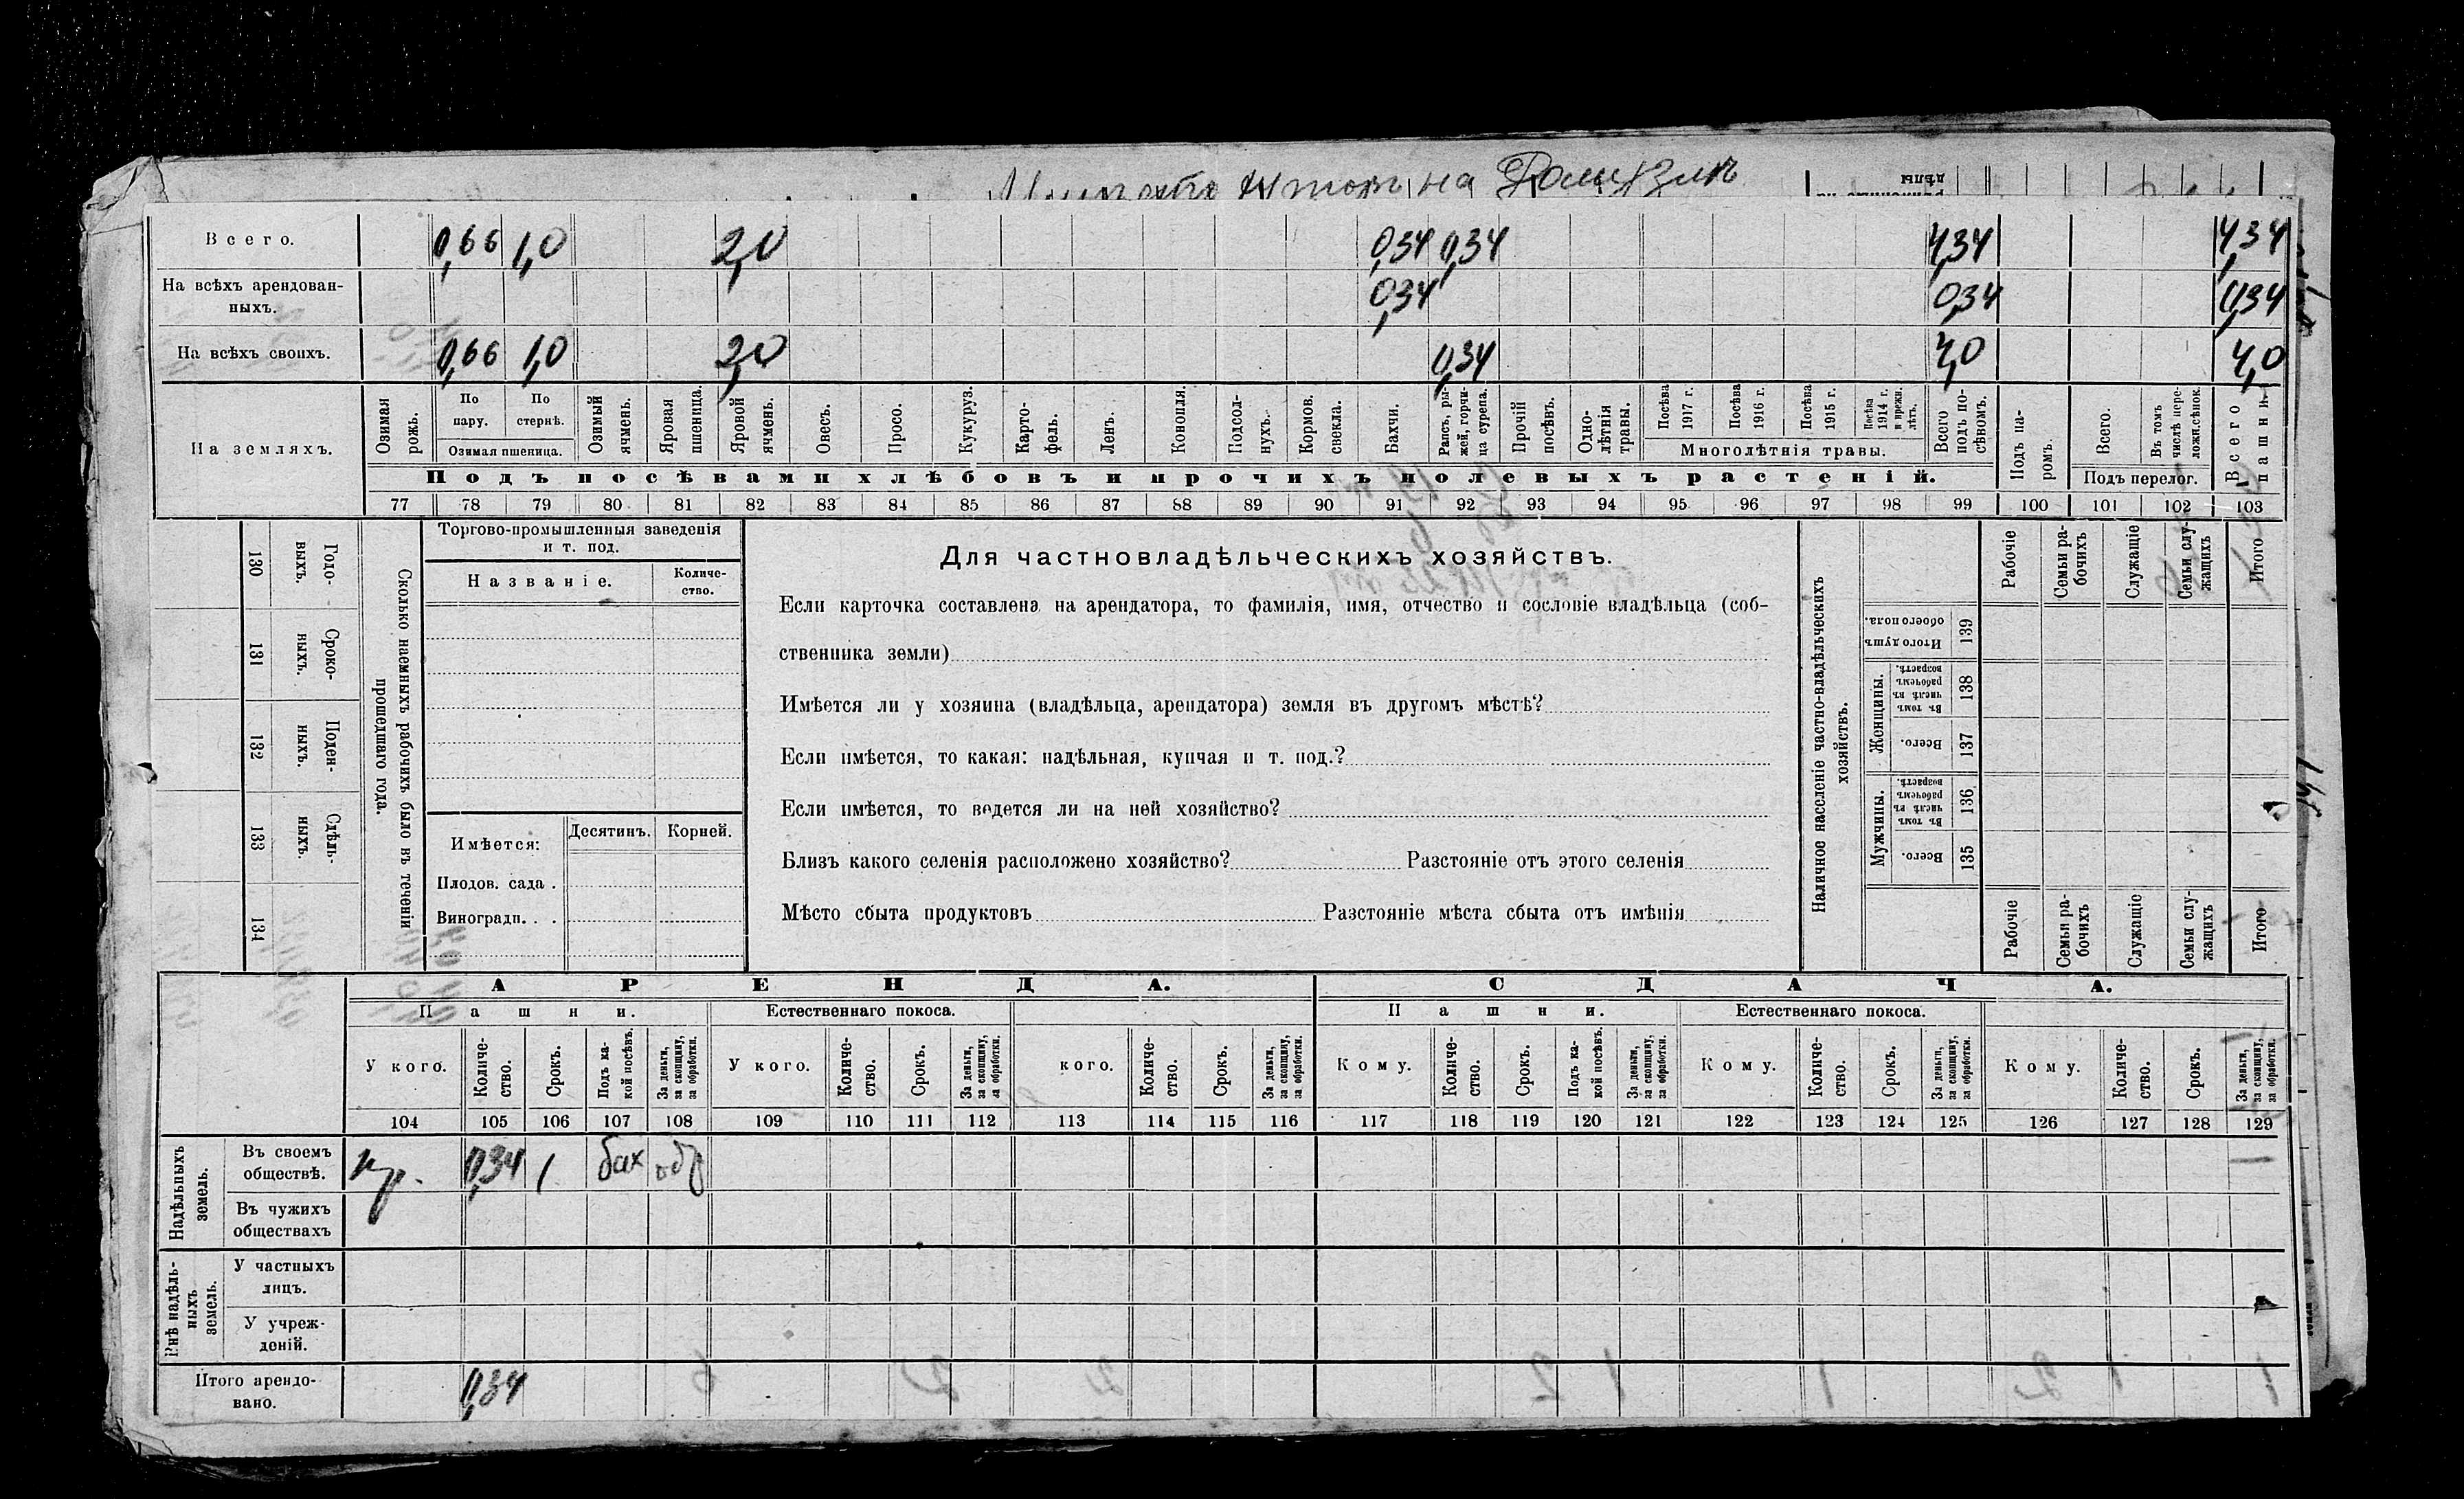 на
Всего. 0,66 1,0 2,0 0,34 0,34 4,34 4,34
На всѣхъ арендован-
ныхъ. 0,34 0,34 0,34
На всѣхъ своихъ. 0,66 1,0 2,0 0,34 4,0 4,0
На земляхъ.
Озимая рожь.
По пару.
По стернѣ.
Озимая пшеница.
Озимый ячмень.
Яровая пшеница.
Яровой ячмень.
Овесъ.
Просо.
Кукуруз.
Карто-
фель.
Ленъ.
Конопля.
Подсол-
нухъ.
Кормов. свекла.
Бахчи.
Рапсъ, ры-
жей, горчи-
ца сурепа.
Прочій посѣвъ.
Одно-
лѣтнія травы.
Посѣва 1917 г.
Посѣва 1916 г.
Посѣва 1915 г.
Посѣва 1914 г. и прежн. лѣтъ.
Многолѣтнія травы.
Всего подъ по-
сѣвомъ.
Подъ па-
ромъ.
Всего.
Въ томъ числѣ пере-
ложн. сѣнок.
Подъ перелог.
Всего пашни.
Подъ посѣвами хлѣбовъ и прочихъ полевыхъ растеній.
77 78 79 80 81 82 83 84 85 86 87 88 89 90 91 92 93 94 95 96 97 98 99 100 101 102 103
130 Годо-
выхъ.
131 Сроко-
выхъ.
132 Поден-
ныхъ.
133 Сдѣль-
ныхъ.
134
Сколько наемныхъ рабочихъ было въ теченіи
прошедшаго года.
Торгово-промышленныя заведенія
и т. под.
Названіе.
Количе-
ство.
Имѣется: Десятинъ. Корней.
Плодов. сада .
Виноградн. . .
Для частновладѣльческихъ хозяйствъ.
Если карточка составлена на арендатора, то фамилія, имя, отчество и сословіе владѣльца (соб-
ственника земли)
Имѣется ли у хозяина (владѣльца, арендатора) земля въ другомъ мѣстѣ?
Если имѣется, то какая: надѣльная, купчая и т. под.?
Если имѣется, то ведется ли на ней хозяйство?
Близъ какого селенія расположено хозяйство? Разстояніе отъ этого селенія
Мѣсто сбыта продуктовъ Разстояніе мѣста сбыта отъ имѣнія
Наличное населеніе частно-владѣльческихъ
хозяйствъ.
Рабочіе
Семьи ра-
бочихъ
Служащіе
Семьи слу-
жащихъ
Итого
Итого душъ
обоего пола.
139
Женщины.
Въ томъ числѣ въ рабочемъ возрастѣ.
138
Всего.
137
Мужчины.
Въ томъ числѣ въ рабочемъ возрастѣ.
136
Всего.
135
Рабочіе
Семьи ра-
бочихъ
Служащіе
Семьи слу-
жащихъ
Итого
АРЕНДА. СДАЧА.
Пашни. Естественнаго покоса. Пашни. Естественнаго покоса.
У кого.
Количе-
ство.
Срокъ.
Подъ ка-
кой посѣвъ.
За деньги,
за скопщину,
за обработки.
У кого.
Количе-
ство.
Срокъ.
За деньги,
за скопщину,
за обработки.
кого.
Количе-
ство.
Срокъ.
За деньги,
за скопщину,
за обработки.
Кому.
Количе-
ство.
Срокъ.
Подъ ка-
кой посѣвъ.
За деньги,
за скопщину,
за обработки.
Кому.
Количе-
ство.
Срокъ.
За деньги,
за скопщину,
за обработки.
Кому.
Количе-
ство.
Срокъ.
За деньги,
за скопщину,
за обработки.
104 105 106 107 108 109 110 111 112 113 114 115 116 117 118 119 120 121 122 123 124 125 126 127 128 129
Надѣльныхъ
земель.
Въ своемъ
обществѣ. кр. 0,34 1 бах обр
Въ чужихъ
обществахъ
Внѣ надѣль-
ныхъ
земель.
У частныхъ
лицъ.
У учреж-
деній.
Итого арендо-
вано. 0,34